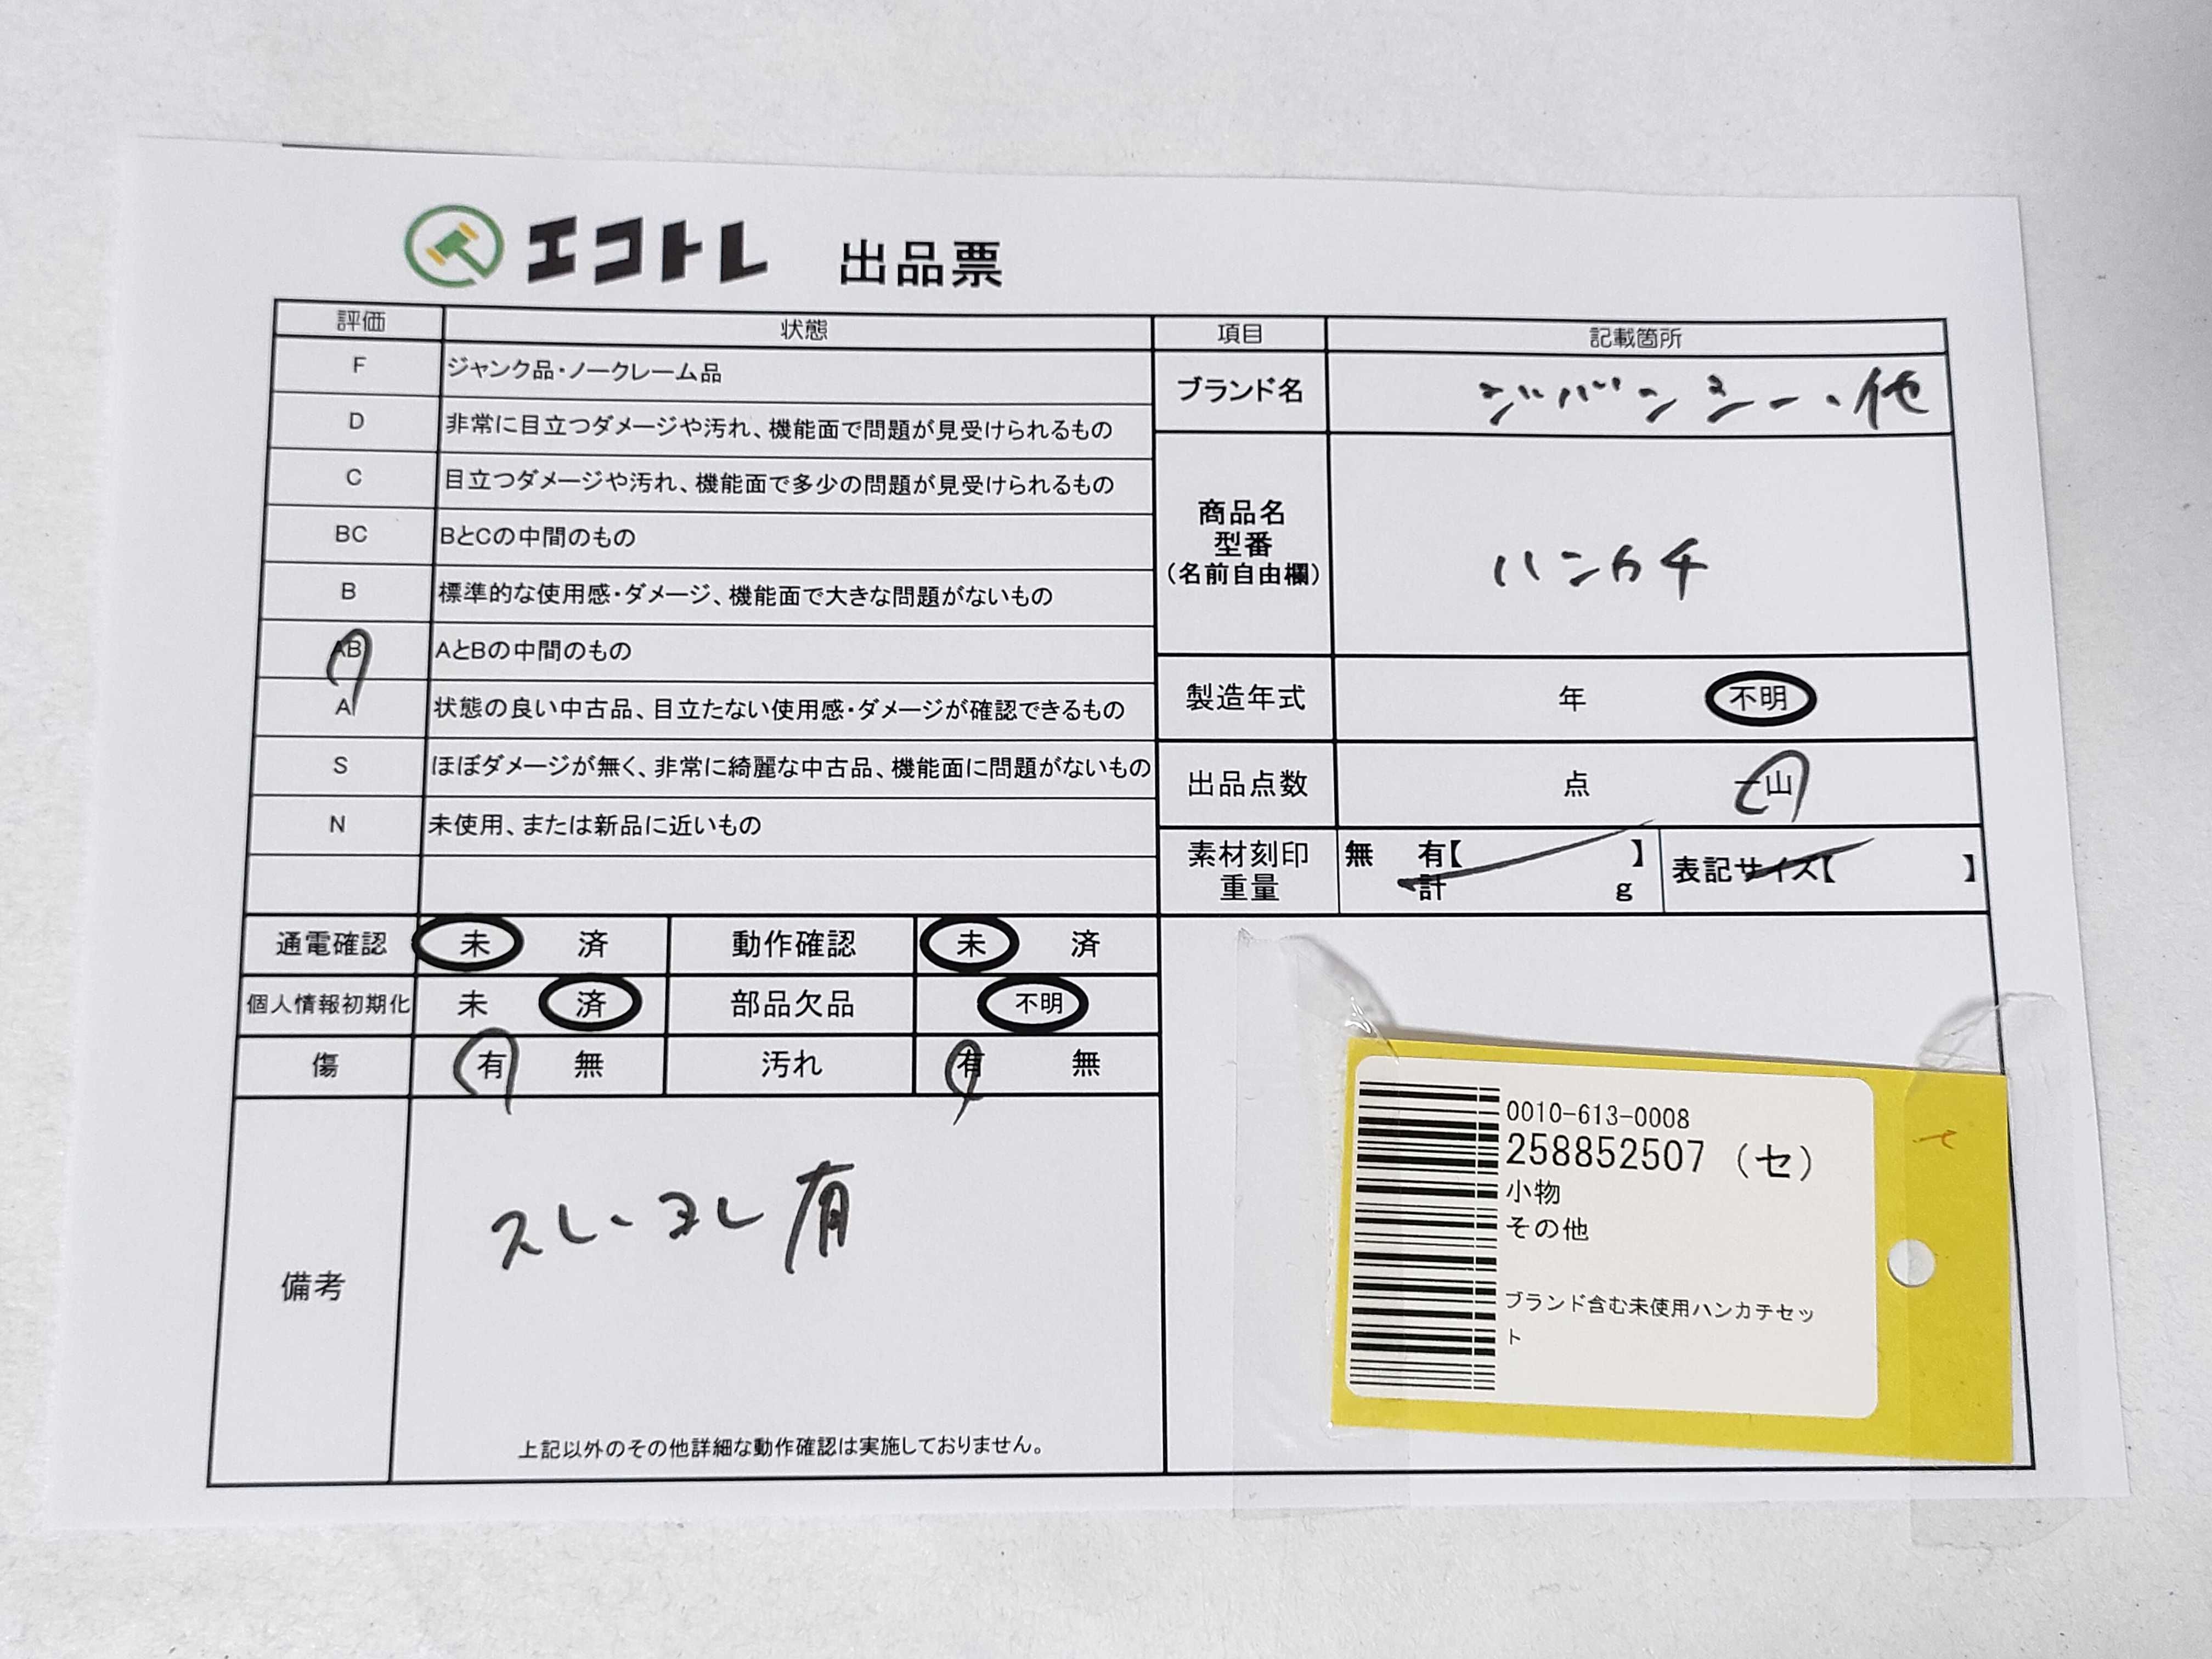 エコトレ 出品票
評価 状態 項目 記載箇所
F ジャンク品・ノークレーム品
ブランド名 ジバンシー・他
D 非常に目立つダメージや汚れ、機能面で問題が見受けられるもの
C 目立つダメージや汚れ、機能面で多少の問題が見受けられるもの
BC BとCの中間のもの
商品名
型番
(名前自由欄)
ハンカチ
B 標準的な使用感・ダメージ、機能面で大きな問題がないもの
AB AとBの中間のもの
A 状態の良い中古品、目立たない使用感・ダメージが確認できるもの
製造年式 年 不明
S ほぼダメージが無く、非常に綺麗な中古品、機能面に問題がないもの
出品点数 点 一山
N 未使用、または新品に近いもの
素材刻印 無 有【 】
重量 計 g
表記サイズ【 】
通電確認 未 済 動作確認 未 済
個人情報初期化 未 済 部品欠品 不明
傷 有 無 汚れ 有 無
備考
スレ・ヨレ有
上記以外のその他詳細な動作確認は実施しておりません。
0010-613-0008
258852507 (セ)
小物
その他
ブランド含む未使用ハンカチセッ
ト